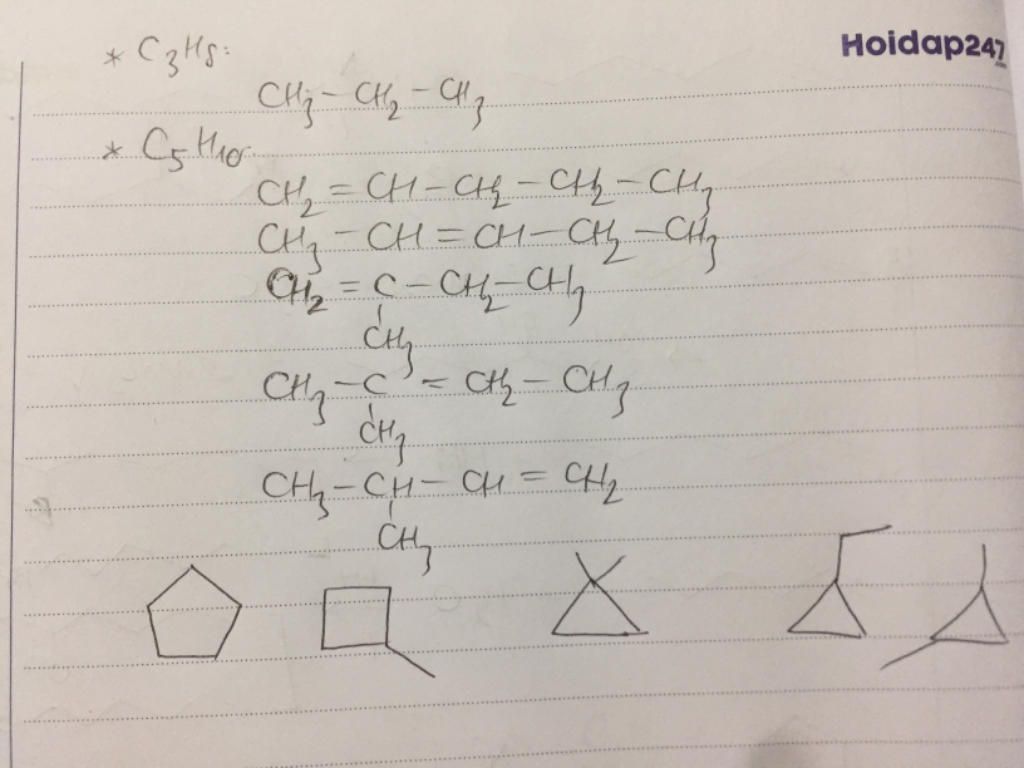 * C₃H₈:
Hoidap247
.com
CH₃ – CH₂ – CH₃
* C₅H₁₀
CH₂ = CH – CH₂ – CH₂ – CH₃
CH₃ – CH = CH – CH₂ – CH₃
CH₂ = C – CH₂ – CH₃
CH₃
CH₃ – C = CH₂ – CH₃
CH₃
CH₃ – CH – CH = CH₂
CH₃